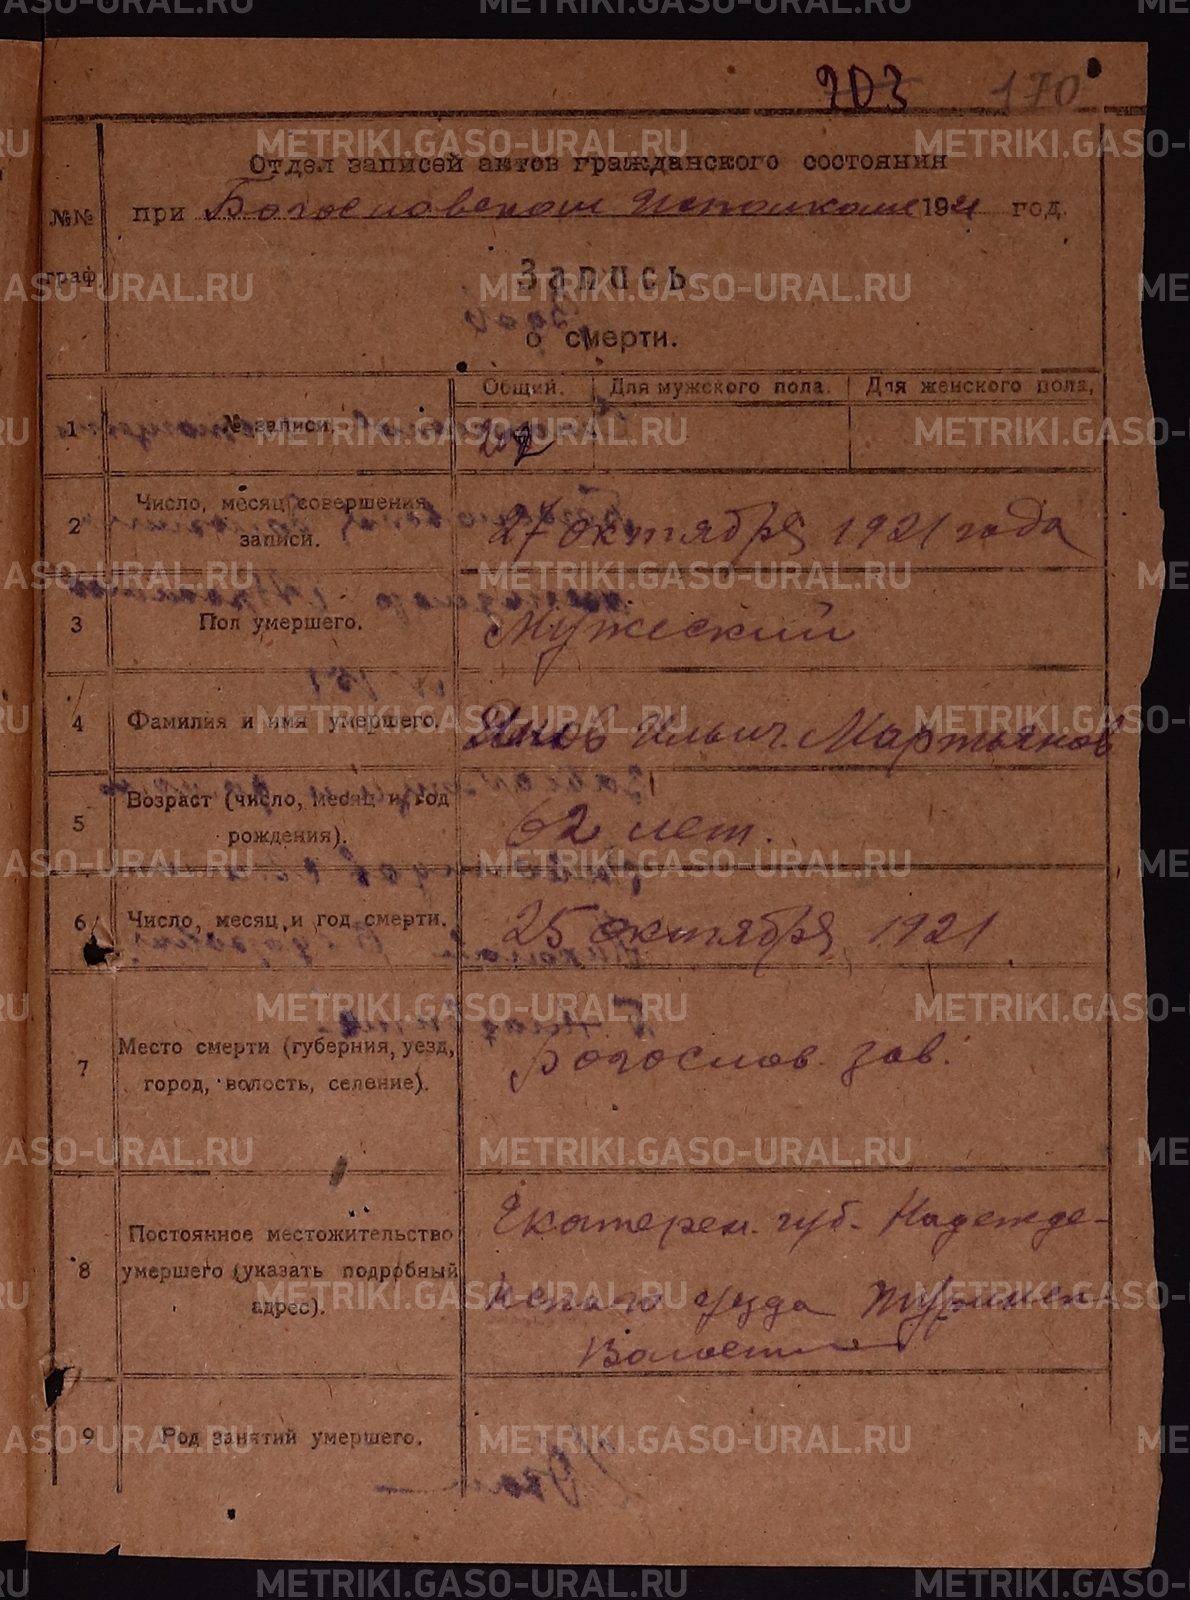 203 170
Отдел записей актов гражданского состояния
№№ при Богословском Исполкоме 1921 год.
граф.
Запись
о смерти.
Общий. Для мужского пола. Для женского пола,
1 № записи.
2 Число, месяц совершения записи. 27 октября 1921 года
3 Пол умершего. Мужеский
4 Фамилия и имя умершего. Ильич. Мартьянов
5 Возраст (число, месяц и год рождения). 62 лет.
6 Число, месяц и год смерти. 25 октября 1921
7 Место смерти (губерния, уезд, город, волость, селение). Богослов. зав.
8 Постоянное местожительство умершего (указать подробный адрес). Екатерен. губ. Надежде-
нского уезда Турьинск.
Волости
9 Род занятий умершего.
METRIKI.GASO-URAL.RU